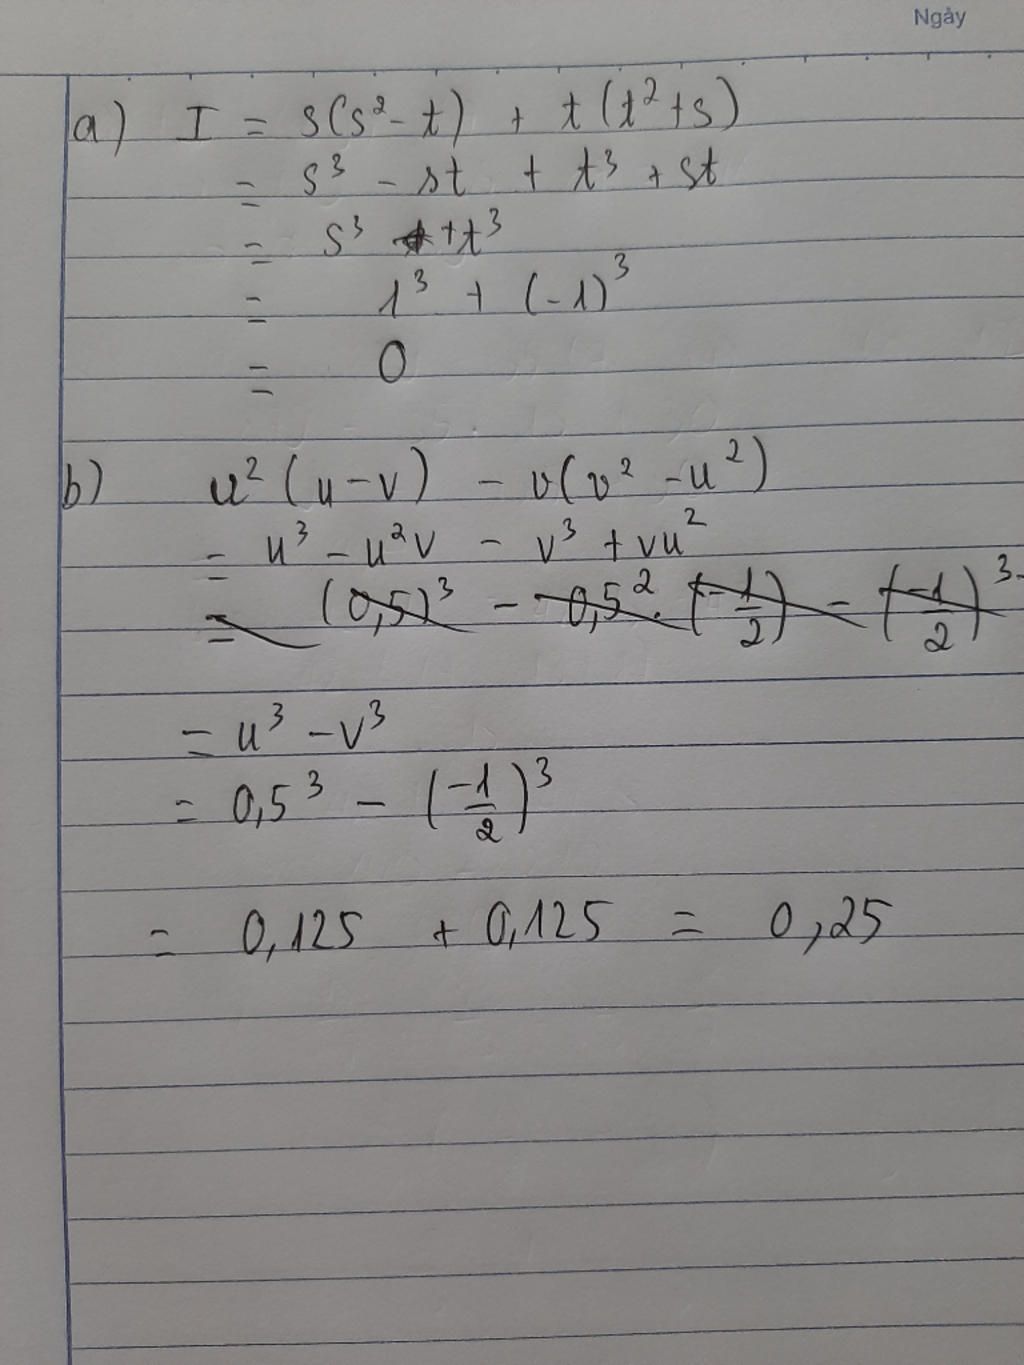 Ngày
a) I = s(s² - t) + t(t² + s)
= s³ - st + t³ + st
= s³ + t³
= 1³ + (-1)³
= 0
b) u² (u - v) - v(v² - u²)
= u³ - u²v - v³ + vu²
= (0,5)³ - 0,5² . (-1/2) - (-1/2)³ -
= u³ - v³
= 0,5³ - (-1/2)³
= 0,125 + 0,125 = 0,25